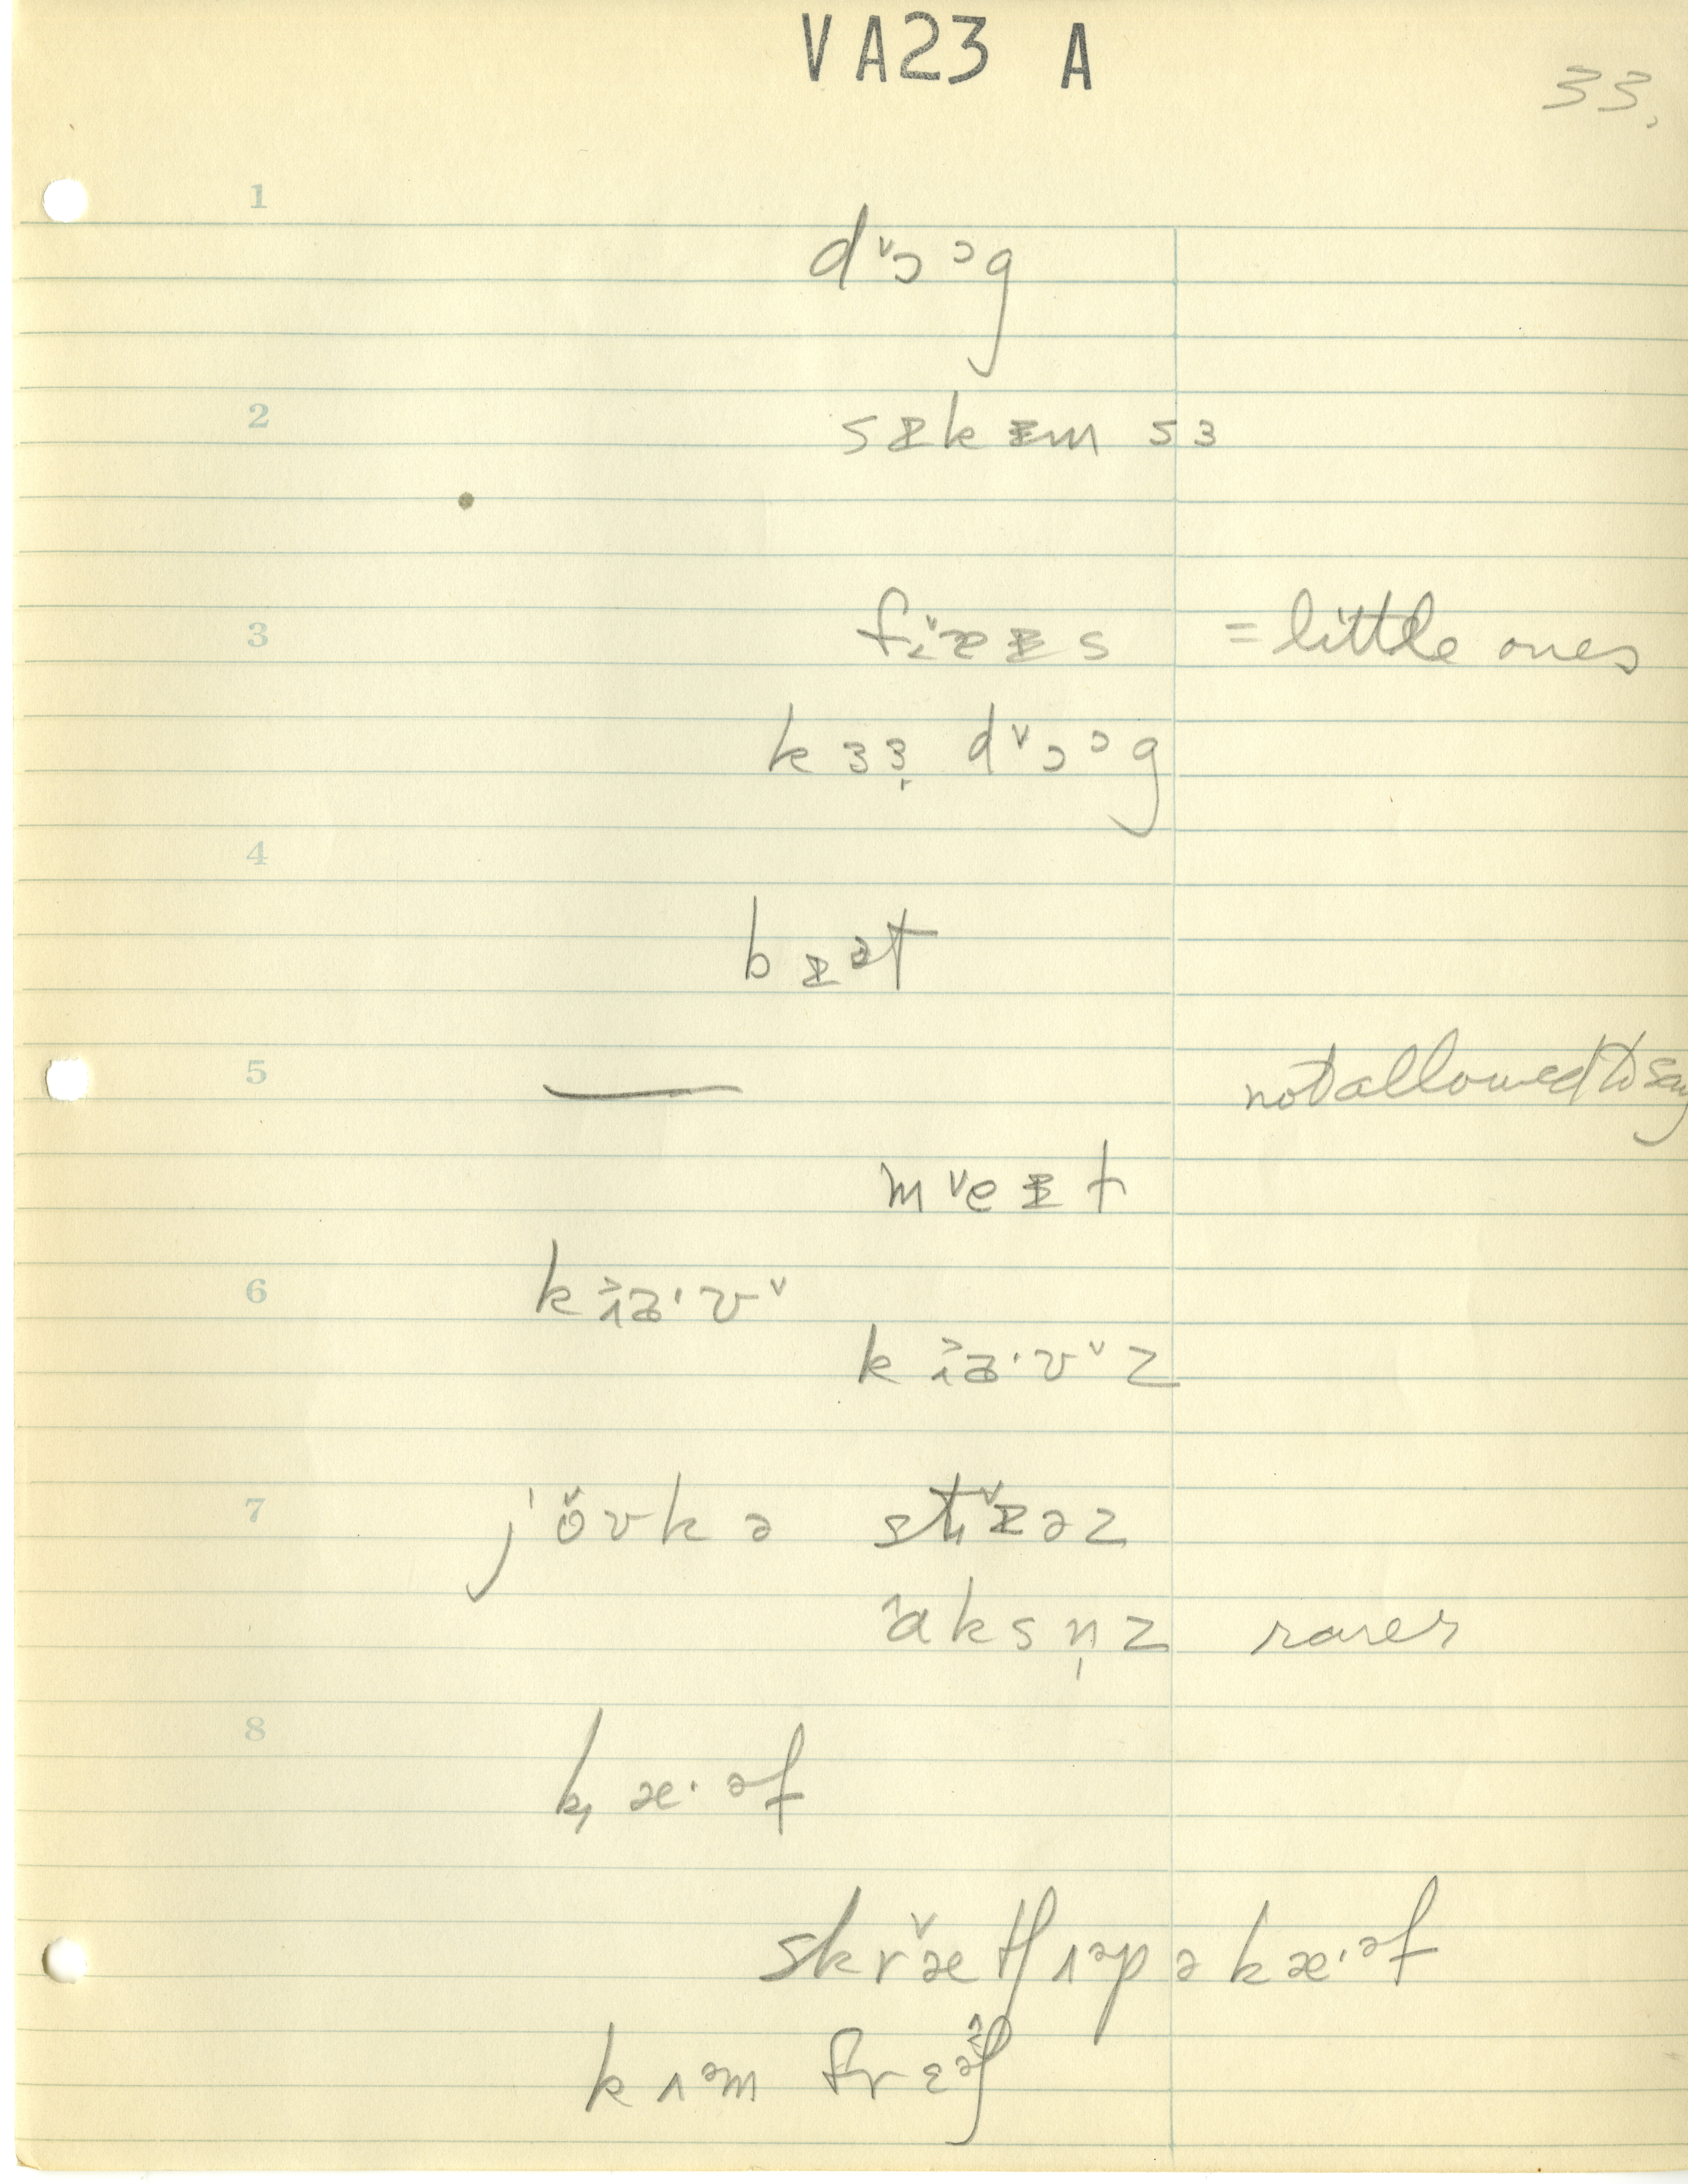 VA23 A
33.
1
d˅ɔᵓg
2
sɪkɪm sɜ
3
fi̬æɪs = little ones
kɜɜ̩ d˅ɔᵓg
4
bɪᵊt
5
— not allowed to say
m˅eɪt
6
6 kɪa·v˅
kɪa·v˅z
7
jo̬vkə stɪəz
aksn̩z rarer
8
kæ·ᵊf
skræ̬tʃʌᵊp ə kæ·ᵊf
kʌᵊm frɛᵊʃ